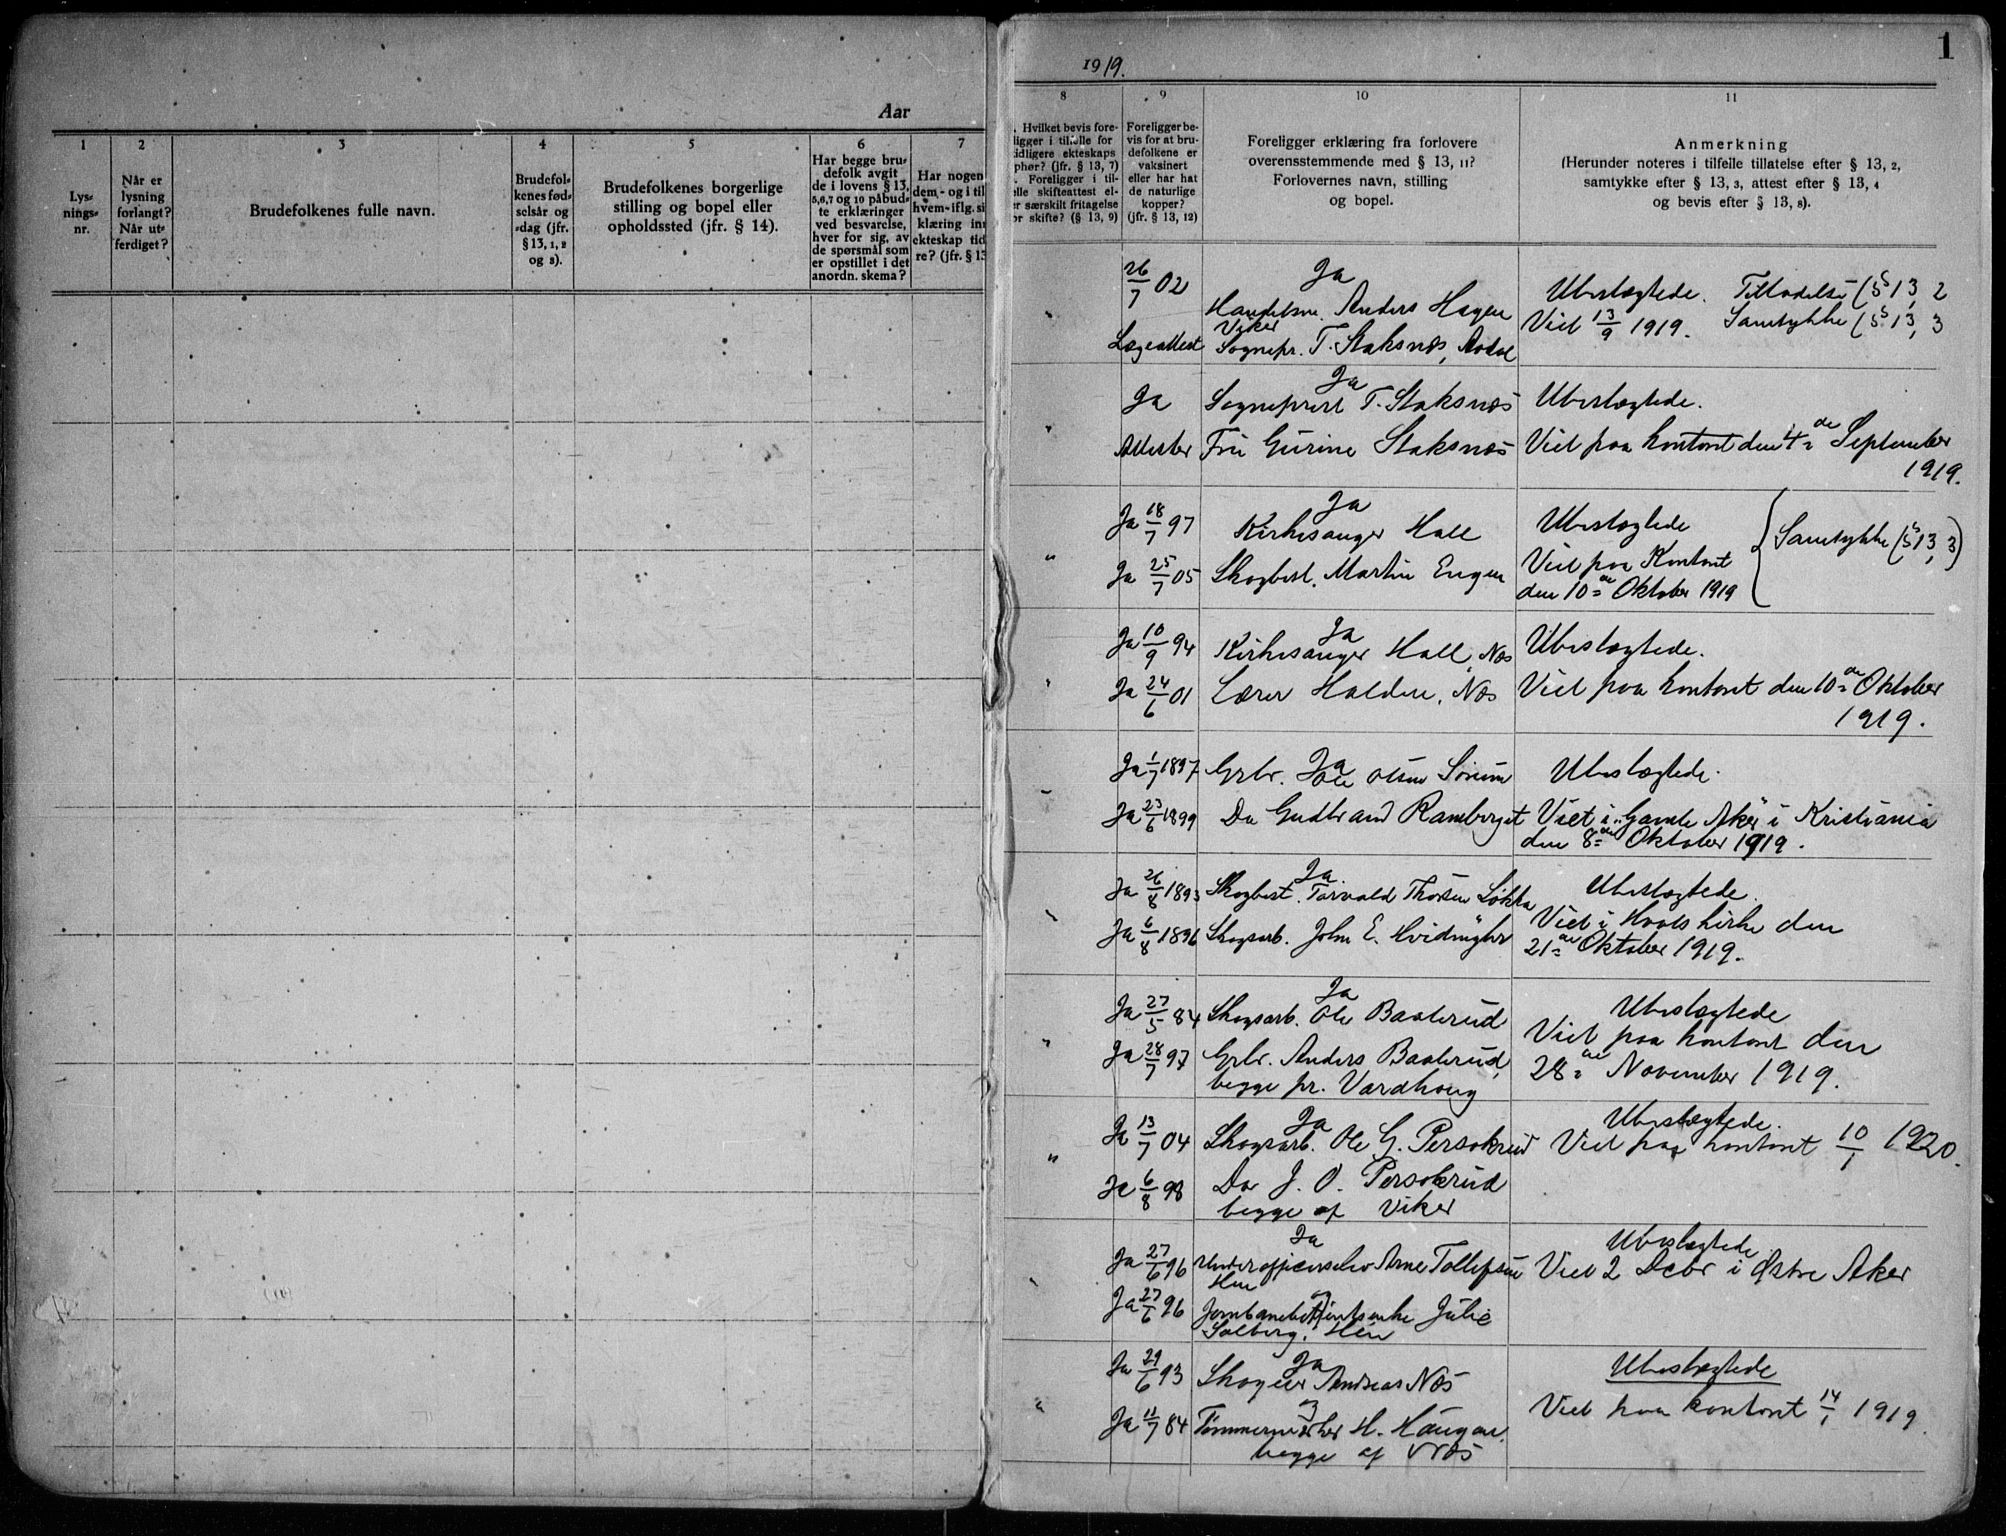 Aar
1
2
3
4
5
6
7
Lys-
nings-
nr.
Når er
lysning
forlangt?
Når ut-
ferdiget?
Brudefolkenes fulle navn.
Brudefol-
kenes fød-
selsår og
-dag (jfr.
§ 13, 1, 2
og 3).
Brudefolkenes borgerlige
stilling og bopel eller
opholdssted (jfr. § 14).
Har begge bru-
defolk avgit
de i lovens § 13,
5,6,7 og 10 påbud-
te erklæringer
ved besvarelse,
hver for sig, av
de spørsmål som
er opstillet i det
anordn. skema?
Har nogen
dem - og i til
hvem - iflg. si
klæring inn
ekteskap tid
re? (jfr. § 13
1919.
1
8
9
10
11
. Hvilket bevis fore-
ligger i tilfelle for
tidligere ekteskaps
phør? (jfr. § 13, 7)
. Foreligger i til-
elle skifteattest el-
er særskilt fritagelse
or skifte? (§ 13, 9)
Foreligger be-
vis for at bru-
defolkene er
vaksinert
eller har hat
de naturlige
kopper?
(jfr. § 13, 12)
Foreligger erklæring fra forlovere
overensstemmende med § 13, 11?
Forlovernes navn, stilling
og bopel.
Anmerkning
(Herunder noteres i tilfelle tillatelse efter § 13, 2,
samtykke efter § 13, 3, attest efter § 13, 4
og bevis efter § 13, 8).
26/7 02
Lægeattest
Ja
Handelsm. Anders Hagen
Viker
Sognepr. T. Staksnæs, Aadal
Ubeslægtede. Tilladelse (§ 13, 2
Viet 13/9 1919. Samtykke (§ 13, 3
Ja
Attester
Ja
Sogneprest T. Staksnæs
Fru Gurine Staksnæs
Ubeslægtede.
Viet paa kontoret den 4de September
1919.
Ja 18/7 97
Ja 25/7 05
Ja
Kirkesanger Hall
Skogbest. Martin Engen
Ubeslægtede
Viet paa Kontoret
den 10de Oktober 1919
Samtykke (§ 13, 3)
Ja 10/9 94
Ja 24/6 01
Ja
Kirkesanger Hall, Næs
Lærer Halden, Næs
Ubeslægtede.
Viet paa kontoret den 10de Oktober
1919.
Ja 1/7 1897
Ja 23/6 1899
Ja
Grbr. Ole Olsen Sørum
Do Gudbrand Ramberget
Ubeslægtede.
Viet i "Gamle Aker" i Kristiania
den 8de Oktober 1919.
Ja 26/8 1893
Ja 6/8 1896
Ja
Skogbest. Torvald Thorsen Løkka
Skogsarb. John E.
Ubeslægtede.
Viet i Hvals kirke den
21de Oktober 1919.
Ja 27/5 84
Ja 28/7 97
Ja
Skogsarb. Ole Baaterud
Grbr. Anders Baaterud,
begge pr. Vardhoug
Ubeslægtede
Viet paa kontoret den
28de November 1919.
Ja 13/7 04
Ja 6/8 98
Ja
Skogsarb. Ole G. Persokrud
Do J. O. Persokrud
begge af Viker
Ubeslægtede.
Viet paa kontoret 10/1 1920.
Ja 27/6 96
Ja 27/6 96
Ja
Underofficerselev Arne Tollefsen
Hen
Jernbanebetjentsenke Julie
Solberg, Hen
Ubeslægtede
Viet 2 Decbr i Østre Aker
Ja 29/6 93
Ja 11/7 84
Ja
Skogeier Andreas Næs
og
Tømmermerker H. Haugen,
begge af Næs
Ubeslægtede
Viet paa kontoret 14/1 1919.